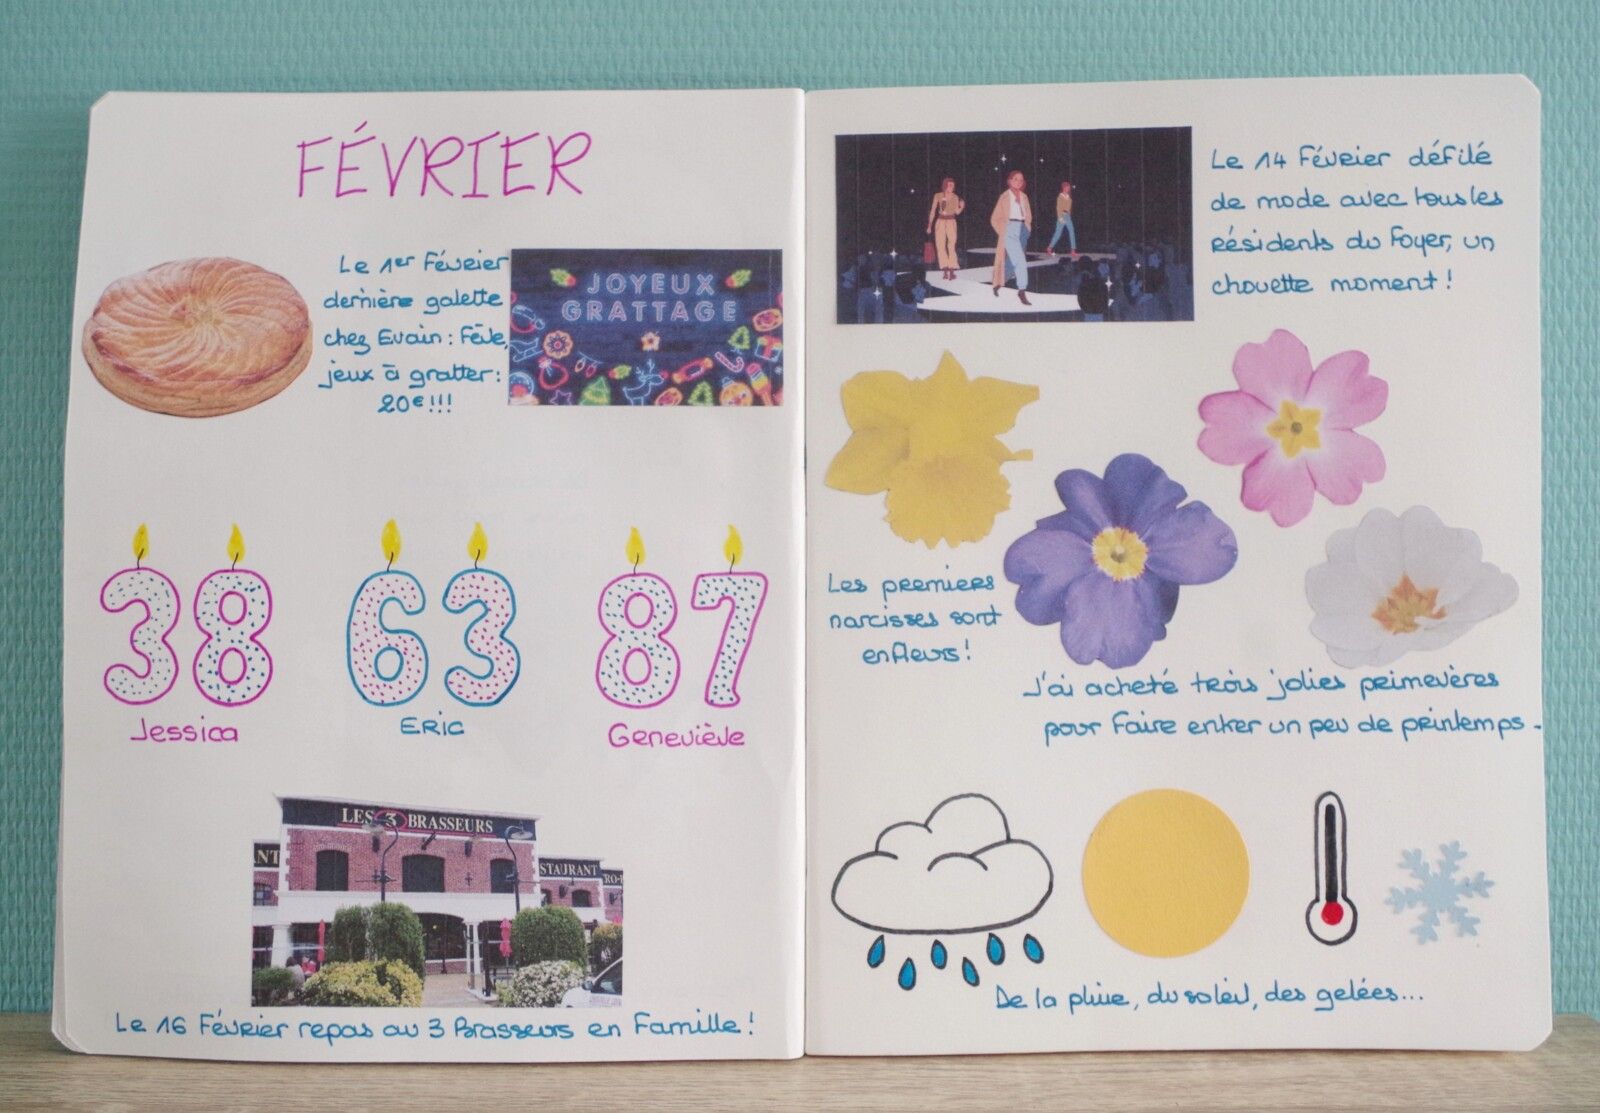 FÉVRIER
Le 1er Février
dernière galette
chez Evain : Fève,
jeux à gratter :
20€!!!
JOYEUX
GRATTAGE
38
63
87
Jessica
Eric
Geneviève
LES 3 BRASSEURS
ANT
STAURANT
Le 16 Février repas au 3 Brasseurs en Famille !
Le 14 Février défilé
de mode avec tous les
résidents du Foyer, un
chouette moment !
Les premiers
narcisses sont
en fleurs !
J'ai acheté trois jolies primevères
pour faire entrer un peu de printemps.
De la pluie, du soleil, des gelées...